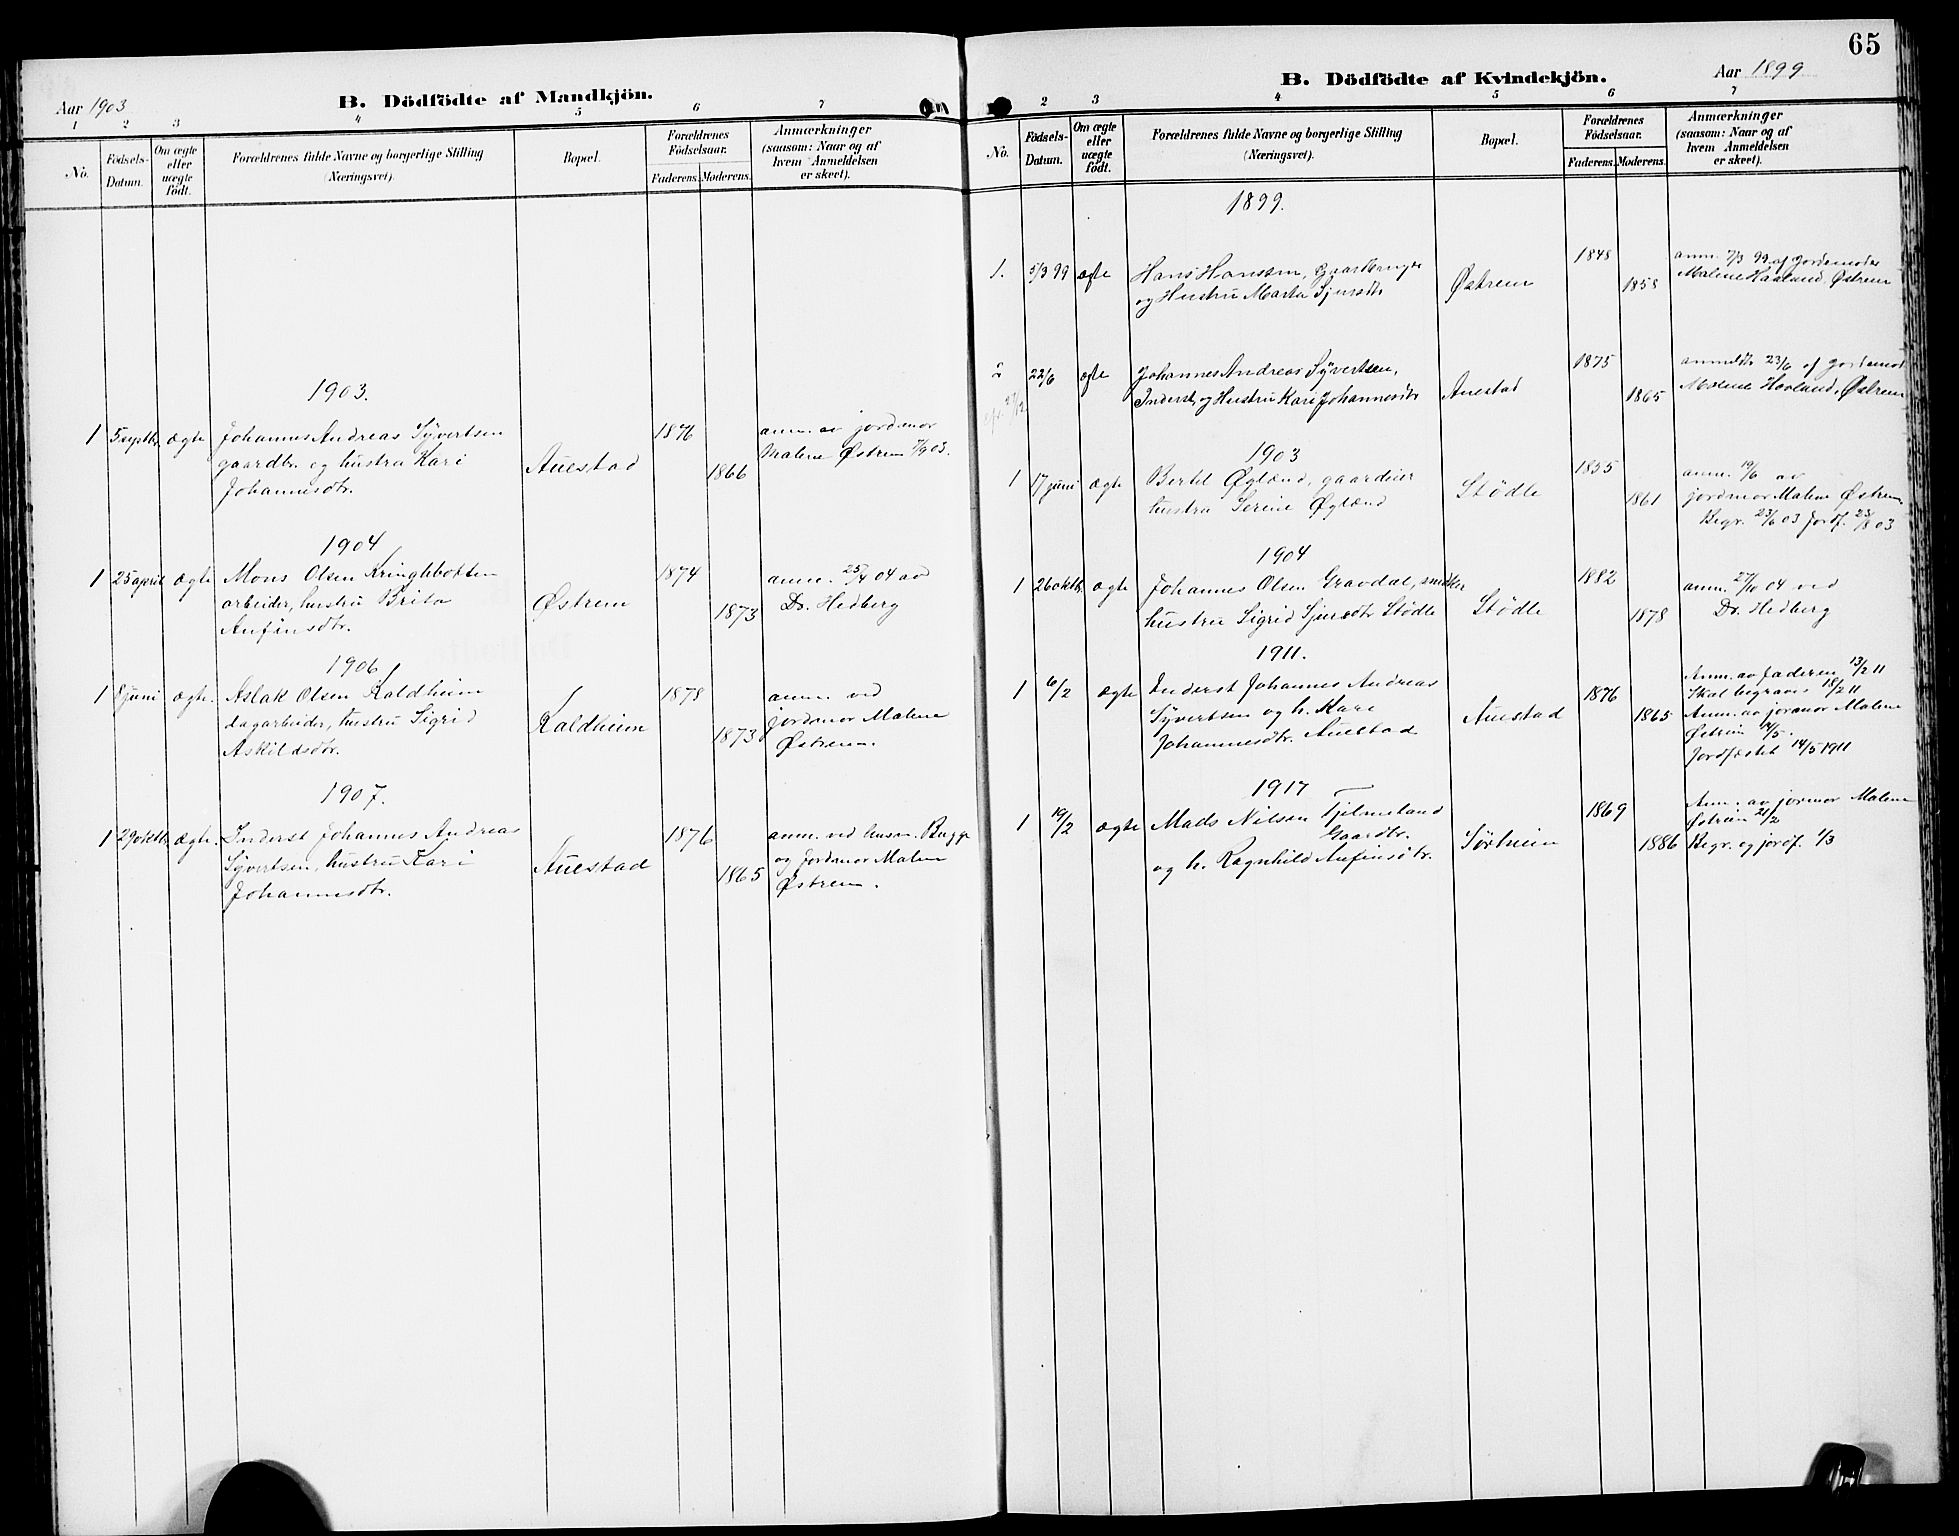 Aar 1903
B. Dödfödte af Mandkjön.
1 2 3 4 5 6 7
No.
Födsels-Datum.
Om ægte eller uægte født.
Forældrenes fulde Navne og borgerlige Stilling
(Næringsvei).
Bopæl.
Forældrenes Födselsaar.
Faderens. Moderens.
Anmærkninger
(saasom: Naar og af
hvem Anmeldelsen
er skeet).
1903.
1 5 septbr. ægte Johannes Andreas Syvertsen
gaardbr. og hustru Kari
Johannesdtr.
Auestad
1876
1866
anm. av jordmor
Malene Østrem 7/9 03.
1904
1 25 april ægte Mons Olsen Kringlebotten
arbeider, hustru Brita
Anfinsdtr.
Østrem
1874
1873
anm. 25/4 04 av
Dr. Hedberg
1906
1 8 juni ægte. Aslak Olsen Kaldheim
dagarbeider, hustru Sigrid
Askildsdtr.
Kaldheim
1878
1873
anm. ved
jordmor Malene
Østrem.
1907.
1 29 oktbr. ægte. Inderst Johannes Andreas
Syvertsen, hustru Kari
Johannesdtr.
Auestad
1876
1865
anm. ved husm. Bugge
og jordmor Malene
Østrem.
65
B. Dödfödte af Kvindekjön.
Aar 1899
2 3 4 5 6 7
No.
Födsels-Datum.
Om ægte eller uægte födt.
Forældrenes fulde Navne og borgerlige Stilling
(Næringsvei).
Bopæl.
Forældrenes Födselsaar.
Faderens. Moderens.
Anmærkninger
(saasom: Naar og af
hvem Anmeldelsen
er skeet).
1899.
1. 5/3 99 ægte Hans Hanssen, Gaardbruger
og Hustru Marta Sjursdtr
Østrem
1848
1858
anm. 7/3 99 af Jordemoder
Malene Haaland, Østrem
2 22/6 ægte Johannes Andreas Syvertsen,
Inderst, og Hustru Kari Johannesdtr
Auestad
1875
1865
anmeldt 23/6 af Jordemod.
Malene Haaland, Østrem
1903
1 17 juni ægte Bertel Øglænd, gaardeier
hustru Serine Øglænd
Stødle
1855
1861
anm. 19/6 av
jordmor Malene Østrem.
Begr. 23/6 03 Jordf. 23/8 03
1904
1 26 oktbr. ægte Johannes Olsen Gravdal, snedker
hustru Sigrid Sjursdtr Stødle
Stødle
1882
1878
anm. 27/10 04 ved
Dr. Hedberg
1911.
1 6/2 ægte Inderst Johannes Andreas
Syvertsen og h. Kari
Johannesdtr. Auestad
Auestad
1876
1865
Anm. av faderen 13/2 11
Skal begraves 18/2 11
Anm. av jormor Malene
Østrem 14/5.
Jordfæstet 14/5 1911
1917
1 19/2 ægte Mads Nilsen Tjelmeland
Gaardbr.
og h. Ragnhild Anfinsdtr.
Sørheim
1869
1886
Anm. av jormor Malene
Østrem 21/2
Begr. og jordf. 1/3